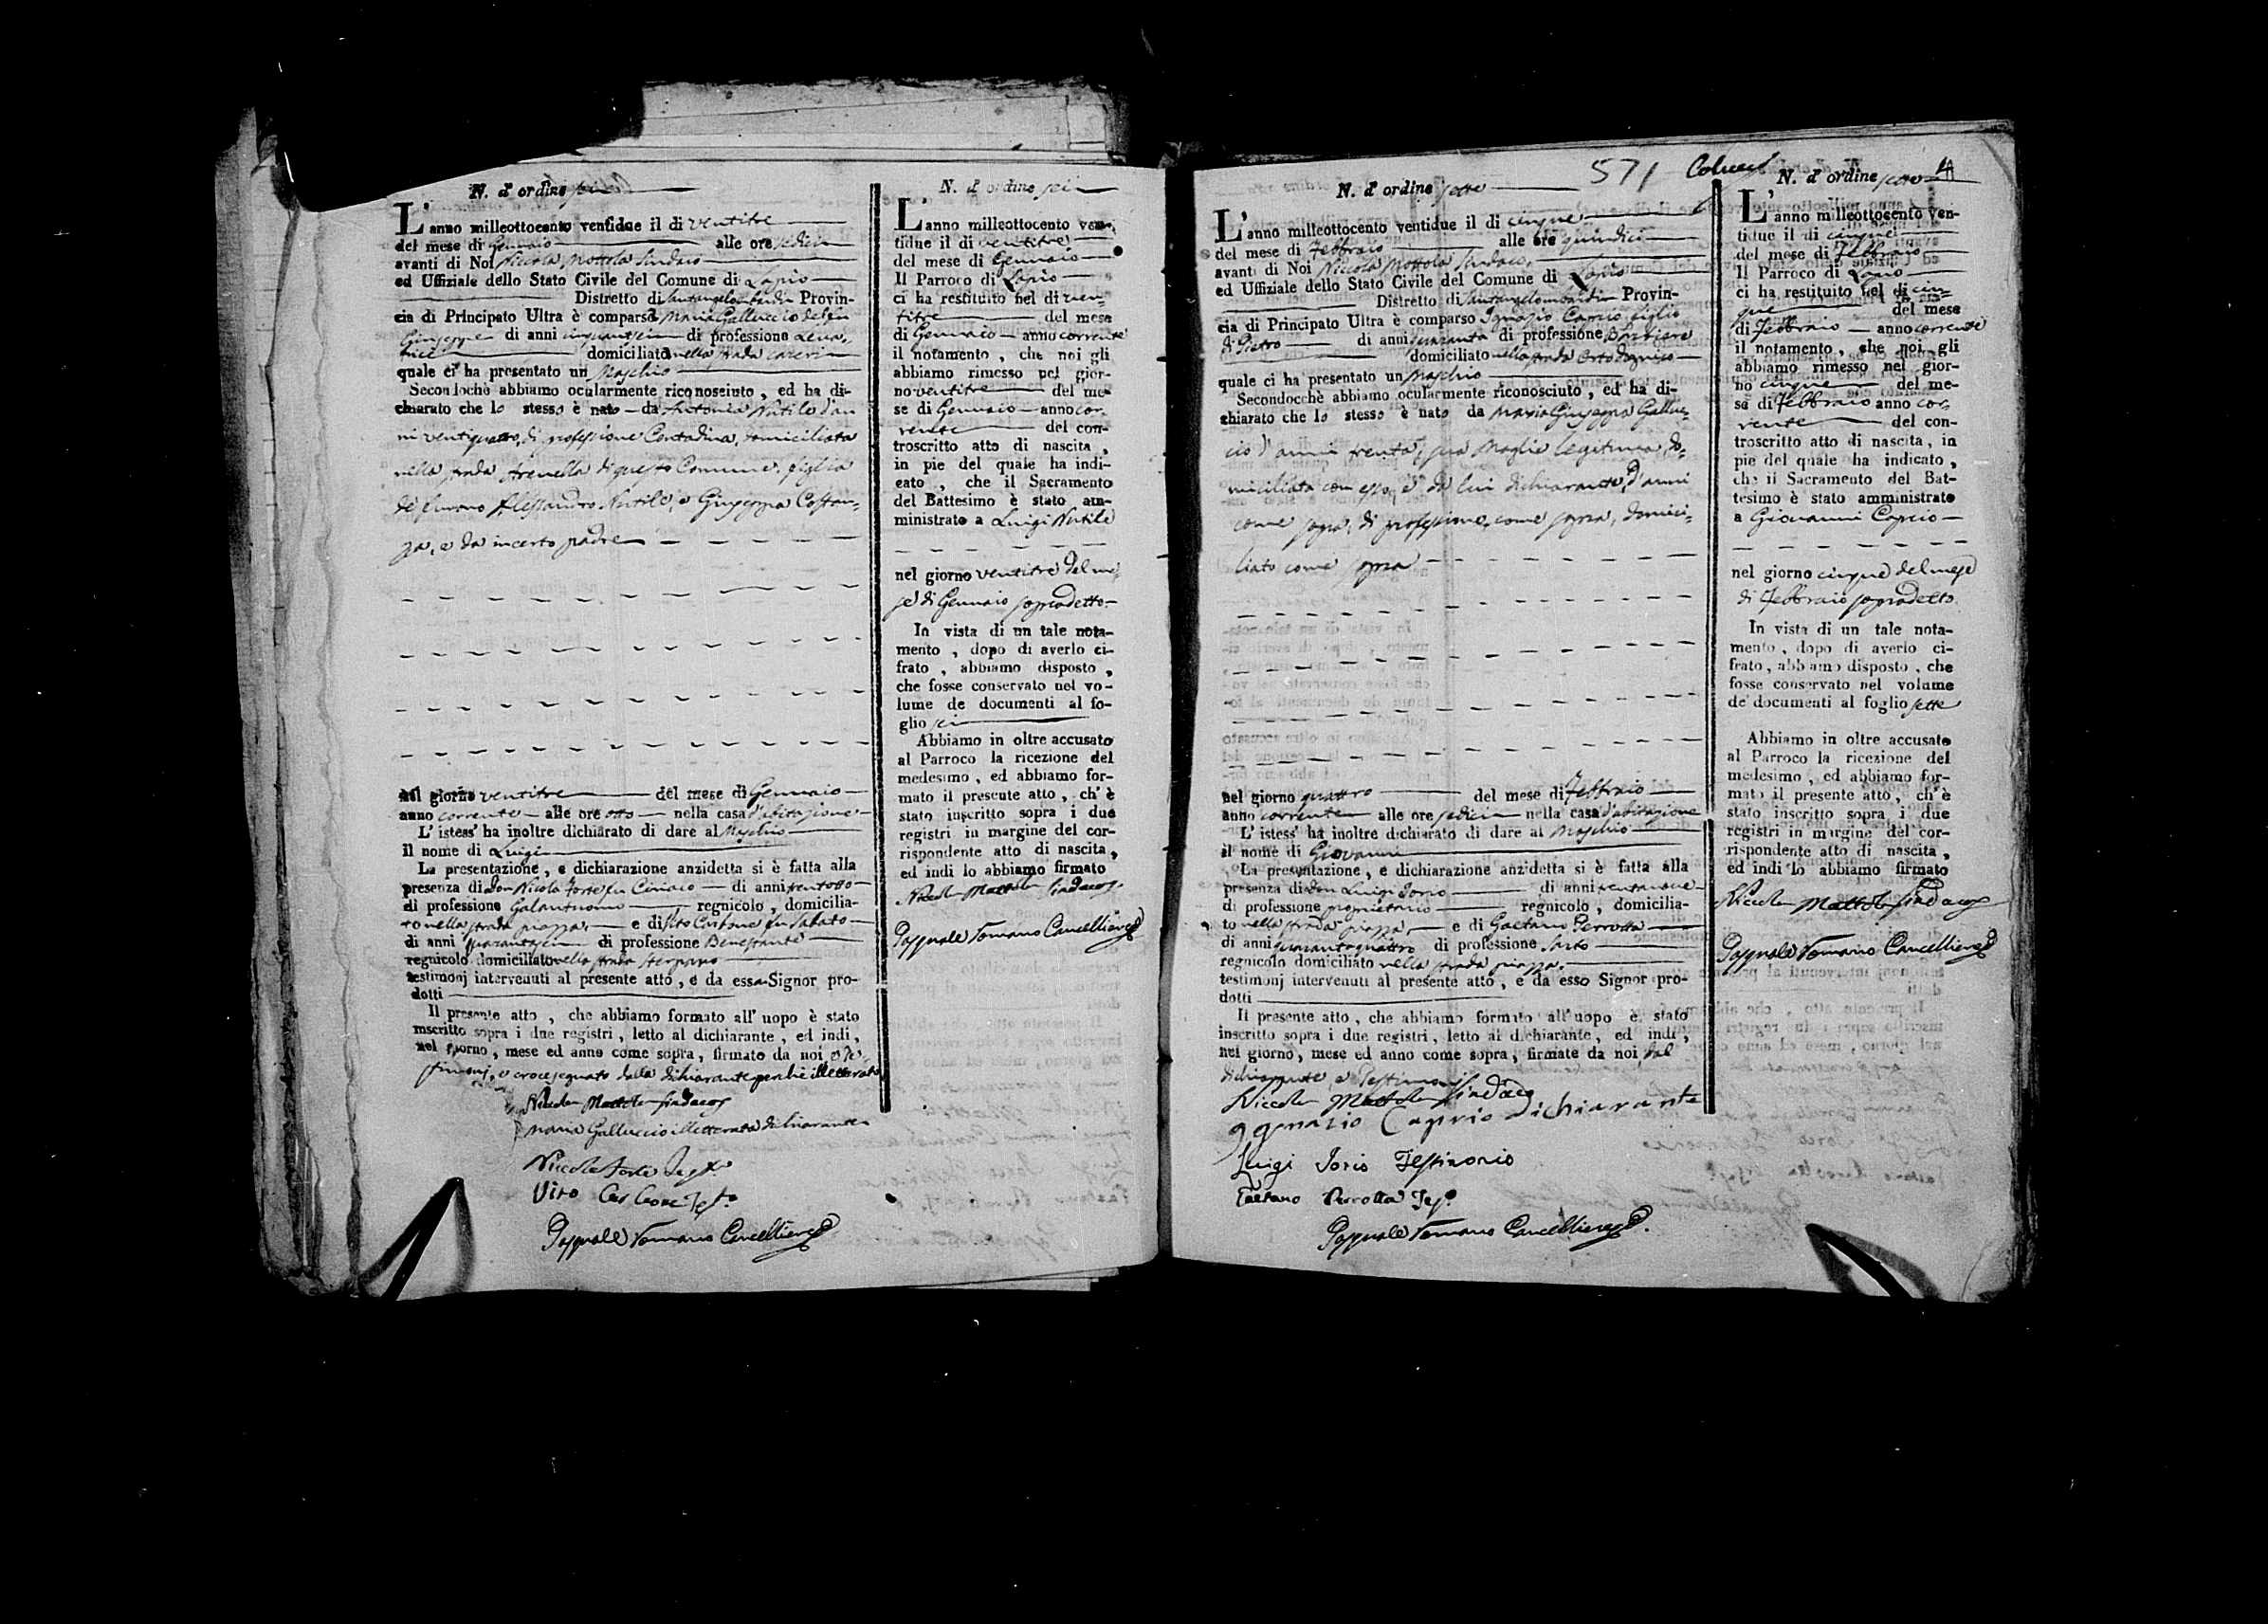 N. d' ordine sei
L' anno milleottocento ventidue il di ventitre
del mese di Gennaio alle ore sedici
avanti di Noi Niccola Mottola Sindaco
ed Uffiziale dello Stato Civile del Comune di Lapio
Distretto di Santangelolombardi Provin-
cia di Principato Ultra è comparsa Maria Galluccio del fu
Giuseppe di anni cinquantasei di professione Leva-
trice domiciliata nella strada
quale ci ha presentato un Maschio
Secondochè abbiamo ocularmente riconosciuto , ed ha di-
chiarato che lo stesso è nato da Antonia Nutile d'an
ni ventiquattro, di professione Contadina, domiciliata
nella strada di questo Comune, figlia
de furono Alessandro Nutile, e Giuseppa Costan-
za, e da incerto padre
nel giorno ventitre del mese di Gennaio
anno corrente alle ore otto nella casa d'abitazione
L' istess' ha inoltre dichiarato di dare al Maschio
il nome di Luigi
La presentazione , e dichiarazione anzidetta si è fatta alla
presenza di Don Nicola Forte fu Ciriaco di anni trentotto
di professione Galantuomo regnicolo , domicilia-
to nella strada piazza e di Vito Carbone fu Sabato
di anni quarantasei di professione Benestante
regnicolo domiciliato nella strada
testimonj intervenuti al presente atto , e da essa Signor pro-
dotti
Il presente atto , che abbiamo formato all' uopo è stato
inscritto sopra i due registri , letto al dichiarante , ed indi ,
nel giorno , mese ed anno come sopra , firmato da noi, e te-
stimonj, e crocesegnato dalla dichiarante perchè illetterata
Niccola Mottola Sindaco
Maria Galluccio illetterata dichiarante
Nicola Forte Testo
Vito Carbone Testo
Pasquale Romano Cancelliere
N. d' ordine sei
L' anno milleottocento ven-
tidue il di ventitre
del mese di Gennaio
Il Parroco di Lapio
ci ha restituito nel di ven-
titre del mese
di Gennaio anno corrente
il notamento , che noi gli
abbiamo rimesso nel gior-
no ventitre del me-
se di Gennaio anno cor-
rente del con-
troscritto atto di nascita ,
in pie del quale ha indi-
cato , che il Sacramento
del Battesimo è stato am-
ministrato a Luigi Nutile
nel giorno ventitre del me-
se di Gennaio sopradetto
In vista di un tale nota-
mento , dopo di averlo ci-
frato , abbiamo disposto ,
che fosse conservato nel vo-
lume de documenti al fo-
glio sei
Abbiamo in oltre accusato
al Parroco la ricezione del
medesimo , ed abbiamo for-
mato il presente atto , ch' è
stato inscritto sopra i due
registri in margine del cor-
rispondente atto di nascita ,
ed indi lo abbiamo firmato
Niccola Mottola Sindaco
Pasquale Romano Cancelliere
571
N. d' ordine sette
L' anno milleottocento ventidue il di cinque
del mese di Febbraio alle ore quindici
avanti di Noi Niccola Mottola Sindaco
ed Uffiziale dello Stato Civile del Comune di Lapio
Distretto di Santangelolombardi Provin-
cia di Principato Ultra è comparso Ignazio Caprio figlio
di Pietro di anni quaranta di professione Barbiere
domiciliato nella strada
quale ci ha presentato un Maschio
Secondocchè abbiamo ocularmente riconosciuto , ed ha di-
chiarato che lo stesso è nato da Maria Giuseppa Gallu-
cio d'anni trenta, sua Moglie legitima, do-
miciliata con esso, e da lui dichiarante, d'anni
come sopra, di professione come sopra, domici-
liato come sopra
nel giorno quattro del mese di Febbraio
anno corrente alle ore sedici nella casa d'abitazione
L' istess' ha inoltre dichiarato di dare al Maschio
il nome di Giovanni
La presentazione , e dichiarazione anzidetta si è fatta alla
presenza di Don Luigi Iorio di anni trentanove
di professione proprietario regnicolo , domicilia-
to nella strada piazza e di Gaetano Perrotta
di anni quarantaquattro di professione Sarto
regnicolo domiciliato nella strada piazza
testimonj intervenuti al presente atto , e da esso Signor pro-
dotti
Il presente atto , che abbiamo formato all' uopo è stato
inscritto sopra i due registri , letto al dichiarante , ed indi ,
nel giorno , mese ed anno come sopra , firmate da noi, dal
dichiarante, e Testimonj
Niccola Mottola Sindaco
Ignazio Caprio Dichiarante
Luigi Iorio Testimonio
Gaetano Perrotta Testo
Pasquale Romano Cancelliere
N. d' ordine sette
L' anno milleottocento ven-
tidue il di cinque
del mese di Febbraio
Il Parroco di Lapio
ci ha restituito nel di cin-
que del mese
di Febbraio anno corrente
il notamento , che noi gli
abbiamo rimesso nel gior-
no cinque del me-
se di Febbraio anno cor-
rente del con-
troscritto atto di nascita , in
pie del quale ha indicato ,
che il Sacramento del Bat-
tesimo è stato amministrato
a Giovanni Caprio
nel giorno cinque del mese
di Febbraio sopradetto
In vista di un tale nota-
mento , dopo di averlo ci-
frato , abbiamo disposto , che
fosse conservato nel volume
de' documenti al foglio sette
Abbiamo in oltre accusato
al Parroco la ricezione del
medesimo , ed abbiamo for-
mato il presente atto , ch' è
stato inscritto sopra i due
registri in margine del cor-
rispondente atto di nascita ,
ed indi lo abbiamo firmato
Niccola Mottola Sindaco
Pasquale Romano Cancelliere